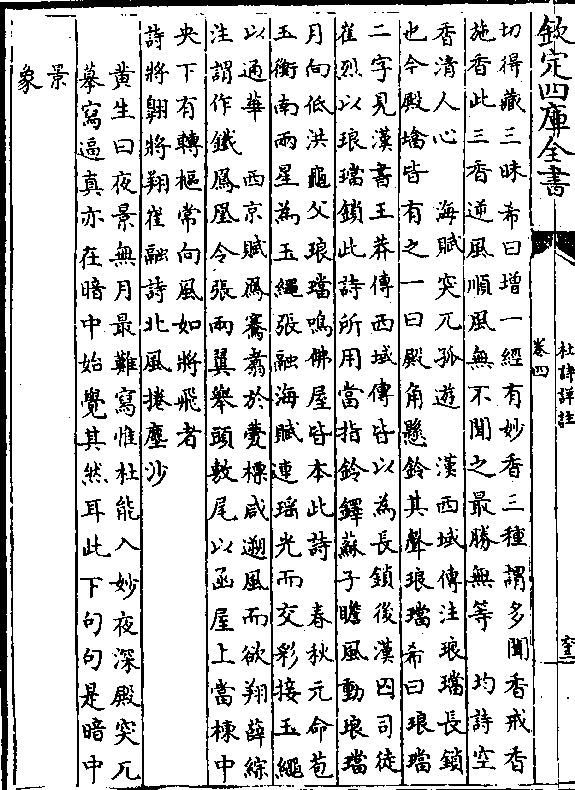 欽定四庫全書
杜詩詳註
卷四
切得藏三昧希曰增一經有妙香三種謂多聞香戒香
施香此三香逆風順風無不聞之最勝無等　均詩空
香清人心　海賦突兀孤遊　漢西域傳注琅璫長鎖
也今殿墻皆有之一曰殿角懸鈴其聲琅璫希曰琅璫
二字見漢書王莽傳西域傳皆以為長鎖後漢因司徒
崔烈以琅璫鎖此詩所用當指鈴鐸蘇子瞻風動琅璫
月向低洪龜父琅璫鳴佛屋皆本此詩　春秋元命苞
玉衡南兩星為玉繩張融海賦連瑤光而交彩接玉繩
以通華　西京賦鳳騫翥於甍標咸遡風而欲翔薛綜
注謂作鐵鳳凰令張兩翼舉頭敷尾以函屋上當棟中
央下有轉樞常向風如將飛者
詩將翱將翔崔融詩北風捲塵沙
黄生曰夜景無月最難寫惟杜能入妙夜深殿突兀
摹寫逼真亦在暗中始覺其然耳此下句句是暗中
景
象